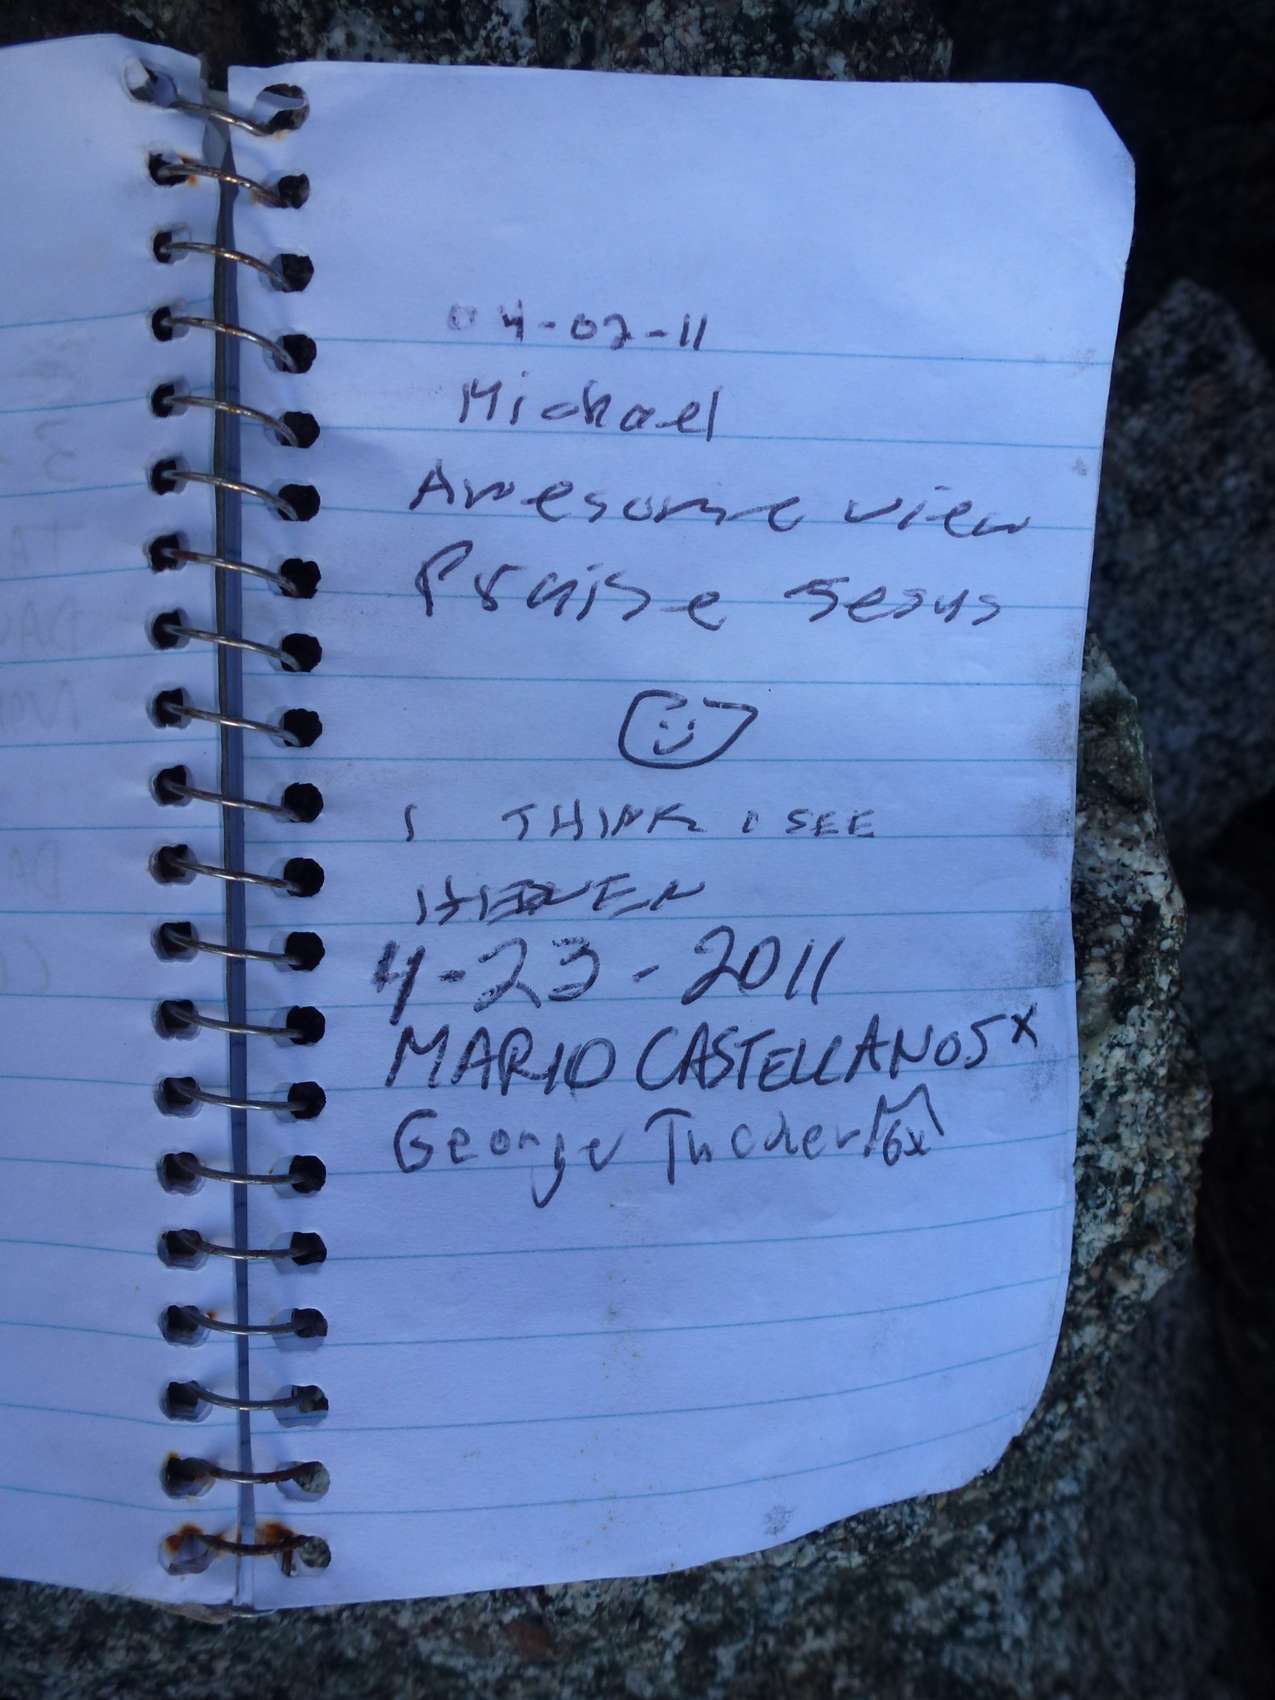 04-02-11
Michael
Awesome view
Praise Jesus
I THINK I SEE
4-23-2011
MARIO CASTELLANOS x
George Tucker 6x